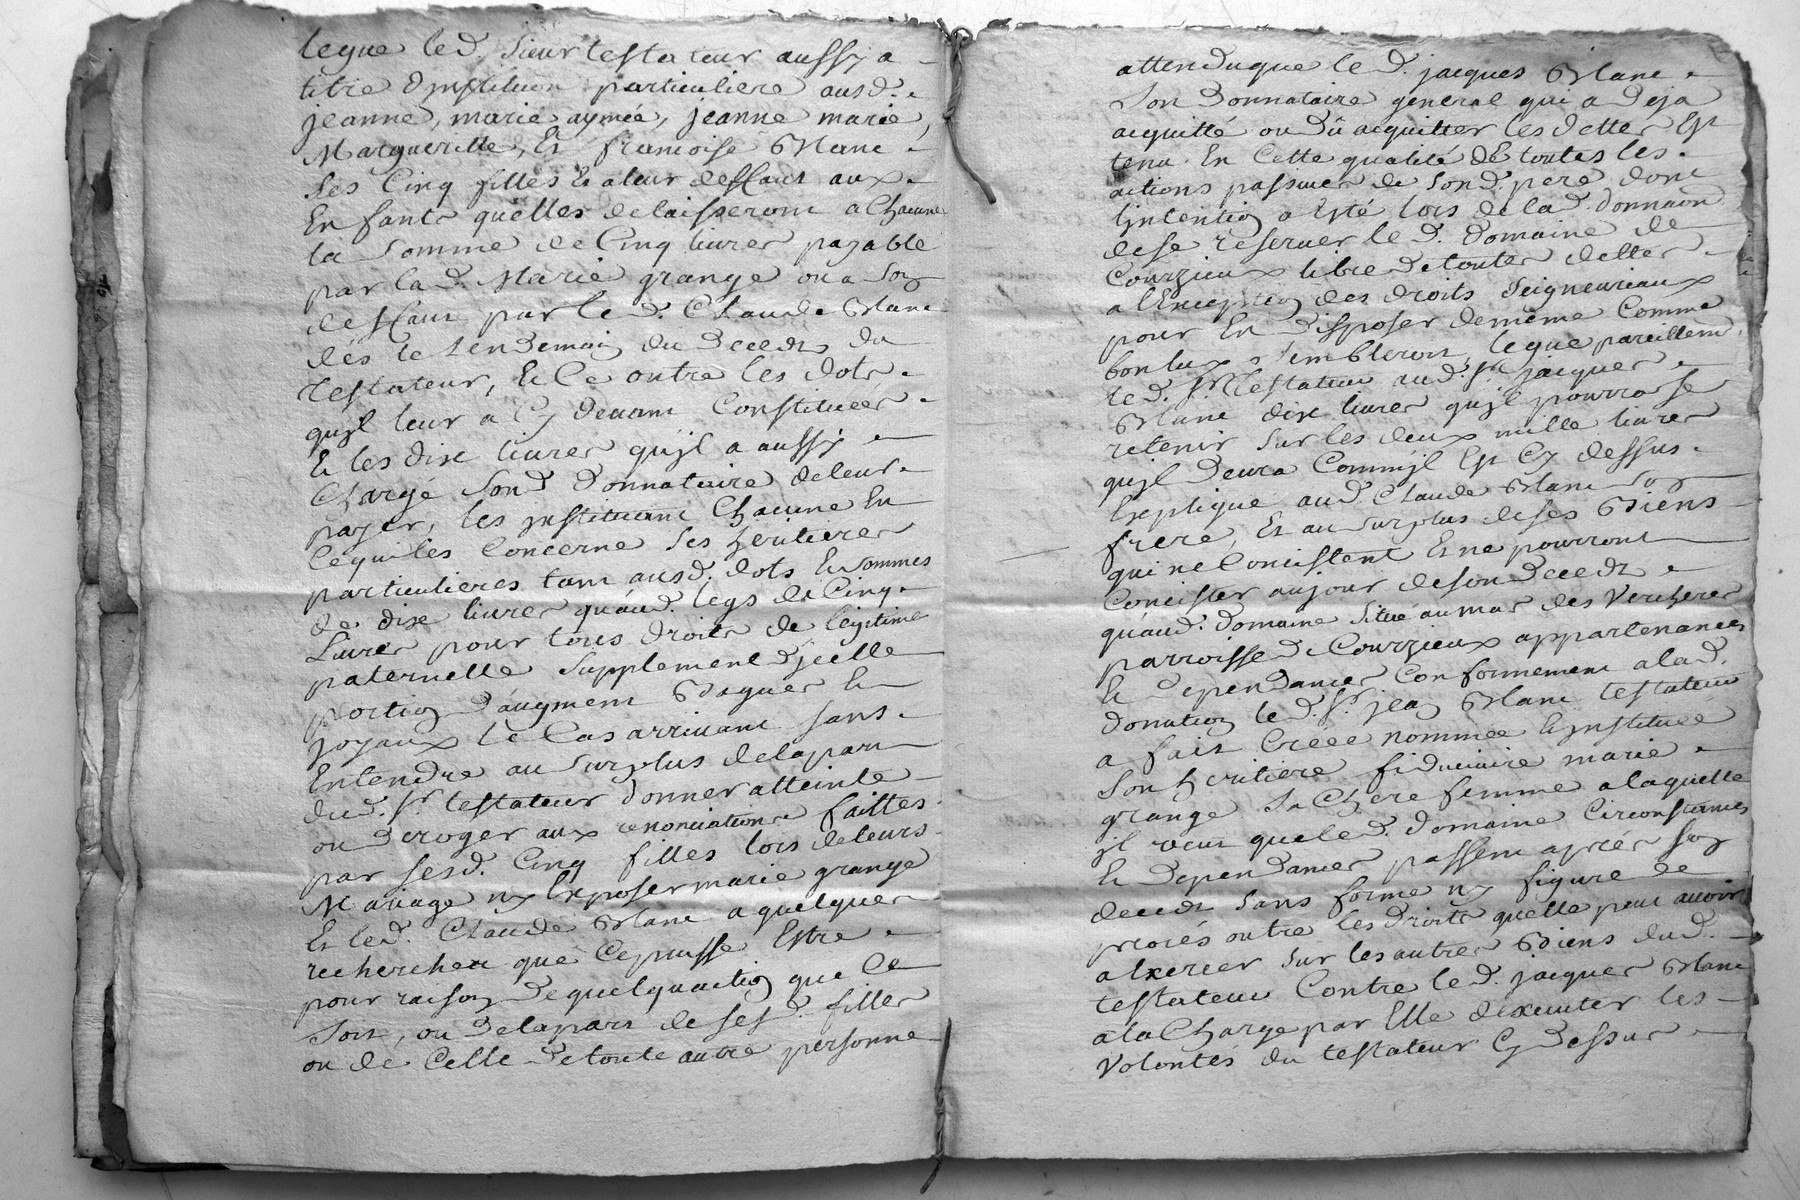 legue led. Sieur testateur aussy a
titre d'institution particuliere ausd.
jeanne, marie aymée, jeanne marie,
Margueritte, Et francoise Blanc
Ses Cinq filles Et aleur deffaut aux
Enfants quelles delaisseront a Chacune
la Somme de Cinq livres payable
par lad. Marie grange ou a Son
deffaut par led. Claude Blanc
dés le lendemain du Decedz du
Testateur, Et Ce outre les dots
qujl leur a Cy devant Constituées
Et les dix livres qujl a aussy
Chargé Sond. Donnataire de leur
payer, les jnstituant Chacune En
Ce qui les Concerne Ses heritieres
particulieres tant ausd. dots Et sommes
de dix livres quaud. legs de Cinq
Livres pour tous droits de legitime
paternelle Supplement D'jcelle
portion d'augment Bagues Et
joyaux le Cas arrivant Sans
Entendre au Surplus de la part
dud. Sr. testateur donner atteinte
ou deroger aux renonciations faittes
par Sesd. Cinq filles lors de leurs
Mariage ny Exposer marie grange
Et led. Claude Blanc a quelques
recherches que Ce puisse Estre
pour raison De quelqu'action que Ce
Soit, ou De la part de Sesd. filles
ou de Celle De toute autre personne
attendu que led. jacques Blanc
Son Donnataire general qui a Deja
acquitté ou dû acquitter les dettes Est
tenu En Cette qualité de toutes les
actions passives de Sond. pere dont
L'jntention a Esté lors de lad. Donnaon
de se reserver led. Domaine de
Courzieux libre De toutes dettes
a l'Exception des droits Seigneuriaux
pour En Disposer de même Comme
bon lux Sembleroit, legue pareillemt.
led. Sr. Testateur aud. Sr. jacques
Blanc dix livres qujl pourra Se
retenir Sur les deux mille livres
qujl Devra Comm'jl Est Cy dessus
Expliqué aud. Claude Blanc Son
frere, Et au Surplus de Ses Biens
qui ne Concistent Et ne pourront
Concister au jour de Son Decedz
qu'aud. Domaine Situé au mas des Vercheres
parroisse De Courzieux appartenances
Et Dependances Conformement a lad.
donation led. Sr. jean Blanc testateur
a fait Créée nommée Et jnstituée
Son heritiere fiduciaire marie
grange Sa Chere femme a laquelle
jl veut que led. Domaine Circonstances
Et Dependances passent après Son
decedz Sans forme ny figure de
procés outre les Droits quelle peut avoir
a Exercer Sur les autres Biens dud.
testateur Contre led. jacques Blanc
a la Charge par Elle d'executer les
Volontés du testateur Cy Dessus